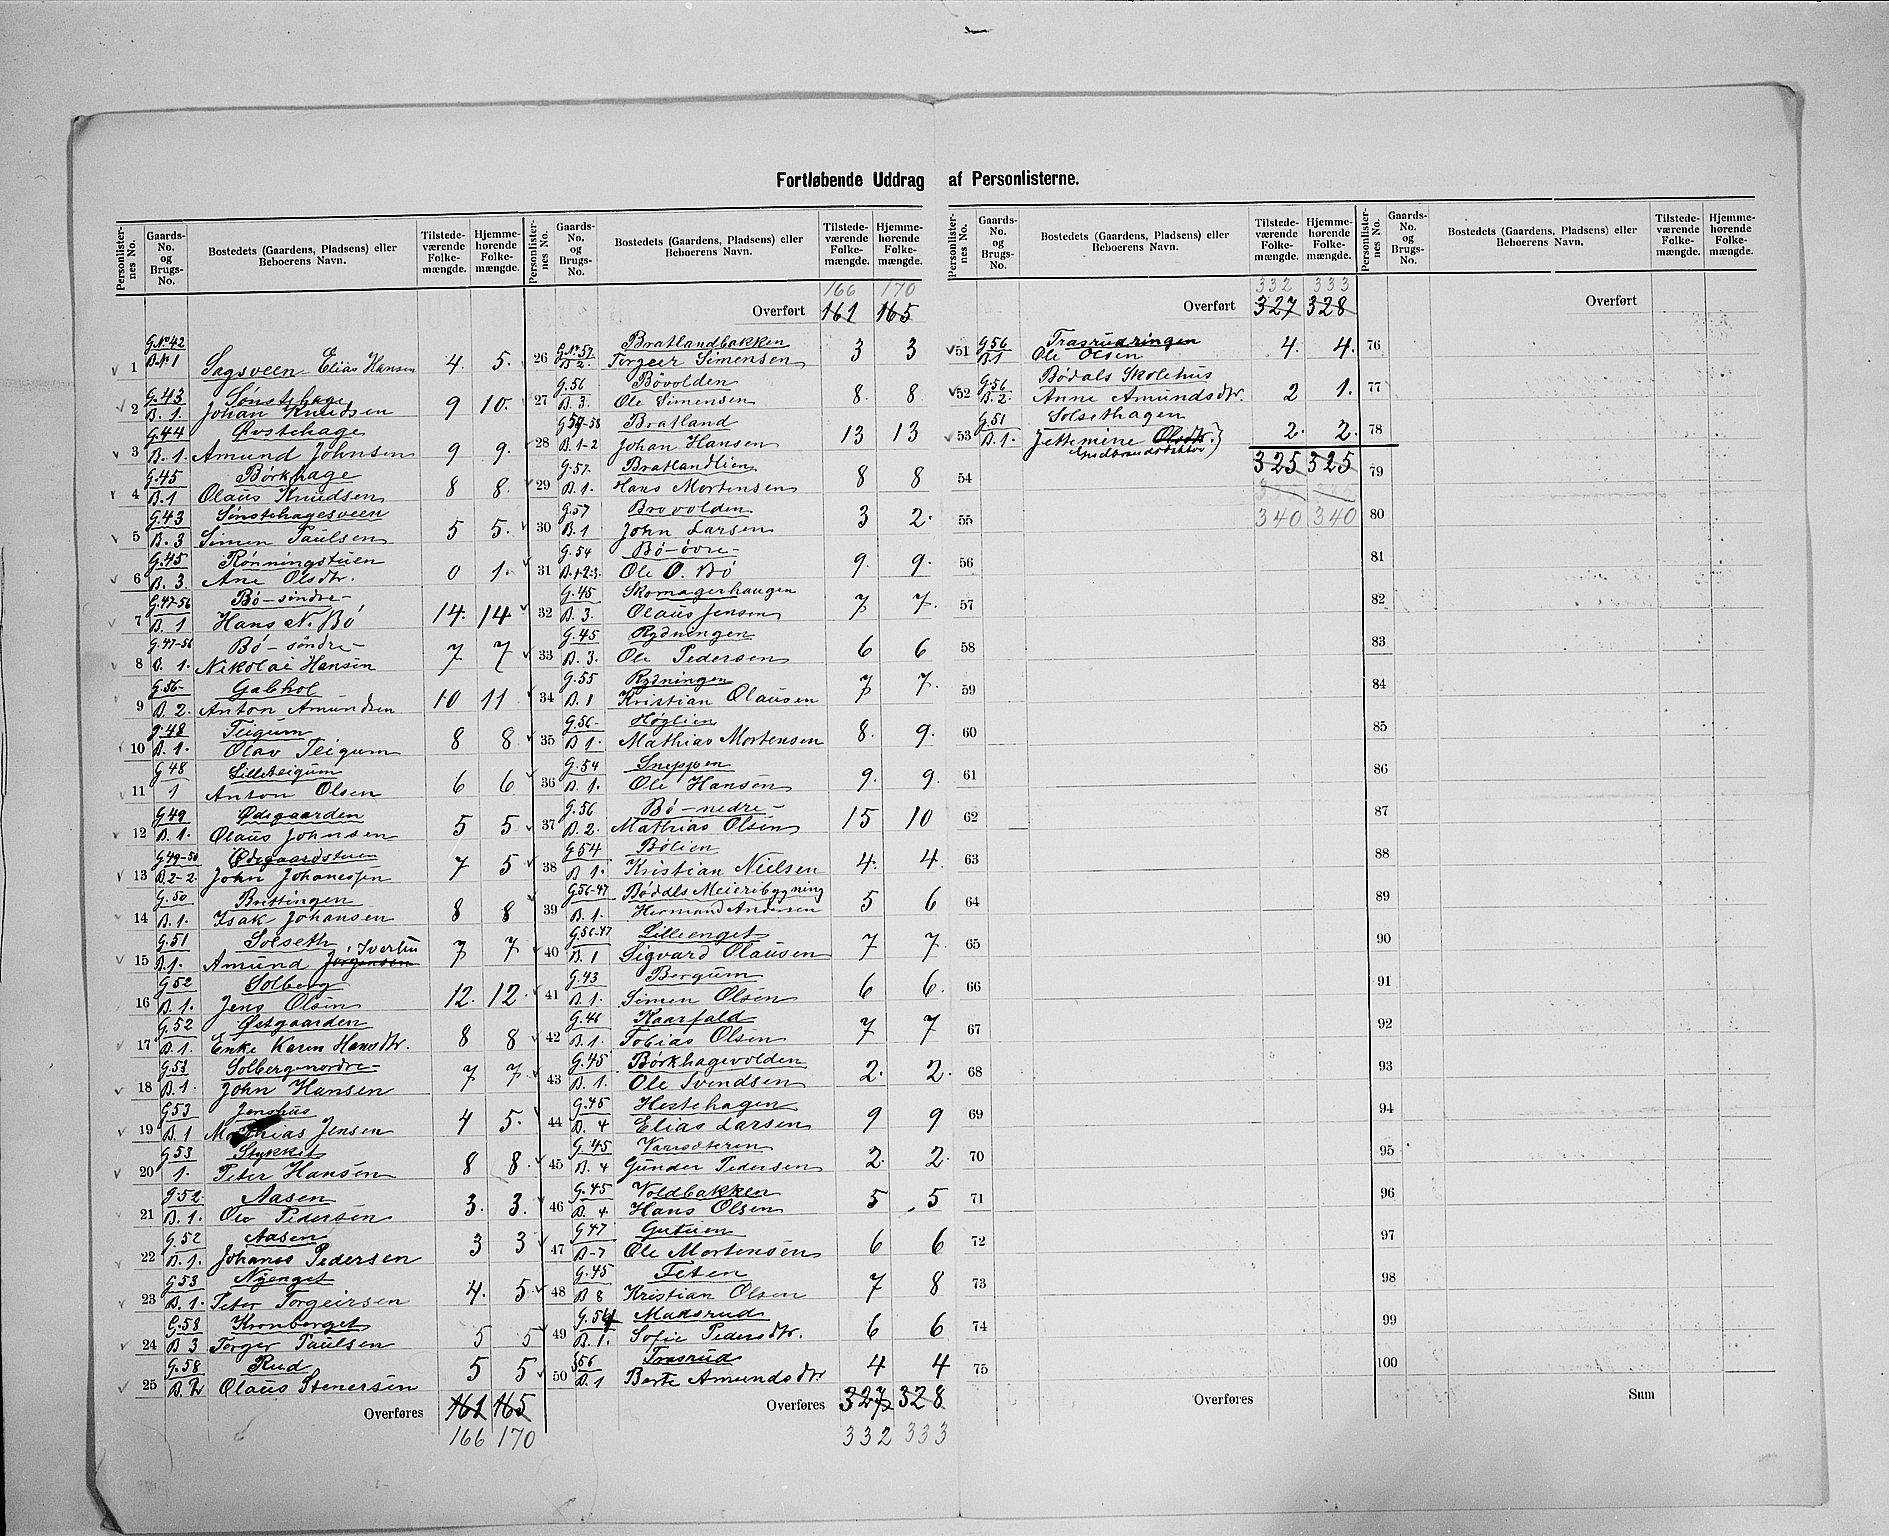 Fortløbende Uddrag af Personlisterne.
Personlister-nes No. Gaards-No. og Brugs-No. Bostedets (Gaardens, Pladsens) eller Beboerens Navn. Tilstede-værende Folke-mængde. Hjemme-hørende Folke-mængde.
G.No.42 B.No.1
1 Sagsveen Elias Hansen 4. 5.
G.43 Sønstehage
2 B.1. Johan Knudsen 9 10.
G.44 Øvstehage
3 B.1. Amund Johnsen 9 9.
G.45 Børkhage
4 B.1 Olaus Knudsen 8 8.
G.43 Sønstehagesveen
5 B.3 Simen Paulsen 5 5.
G.45 Rønningstuen
6 B.3. Ane Olsdtr. 0 1.
G.47-56 Bø-søndre-
7 B.1 Hans N. Bø 14. 14
G.47-56 Bø-søndre-
8 B.1. Nikolai Hansen 7 7
G.56- Gabhol
9 B.2. Anton Amundsen 10 11
G.48 Teigum
10 B.1. Olav Teigum 8 8
G.48 Lilleteigum
11 1 Anton Olsen 6 6
G.49 Ødegaarden
12 B.1. Olaus Johnsen 5 5
G.49-50 Ødegaardstuen
13 B.2-2. John Johanessen 7 5
G.50 Brettingen
14 B.1. Isak Johansen 8 8
G.51 Solseth
15 B.1. Amund Jørgensen Iversen 7 7
G.52 Solberg
16 B.1. Jens Olsen 12. 12.
G.52 Østgaarden
17 B.1. Enke Karen Hansdtr. 8 8
G.53 Solberg-nordre-
18 B.1. John Hansen 7 7
G.53 Jenshus
19 B.1 Mathias Jensen 4 5.
G.53 Stykket
20 1. Peter Hansen 8 8.
G.52 Aasen
21 B.1. Ole Pedersen 3. 3.
G.52 Aasen
22 B.1. Johanes Pedersen 3 3
G.53 Nyenget
23 B.1. Peter Torgeirsen 4. 5.
G.58 Kronberget
24 B.3 Torger Paulsen 5 5
G.58 Rud
25 B.2 Olaus Stenersen 5 5
Overføres 161 165
166 170
Personlister-nes No. Gaards-No. og Brugs-No. Bostedets (Gaardens, Pladsens) eller Beboerens Navn. Tilstede-værende Folke-mængde. Hjemme-hørende Folke-mængde.
166 170
Overført 161 165
G.No.57 Bratlandbakken
26 B.2. Torgeer Simensen 3 3
G.56 Bøvolden
27 B.3. Ole Simensen 8 8
G.57-58 Bratland
28 B.1-2 Johan Hansen 13 13
G.57. Bratlandlien
29 B.1. Hans Mortensen 8 8
G.57 Brovolden
30 B.1 John Larsen 3 2.
G.54 Bø-øvre-
31 B.1-2-3. Ole O. Bø 9. 9.
G.45 Skomagerhaugen
32 B.3. Olaus Jensen 7 7.
G.45 Rydningen
33 B.3. Ole Pedersen 6 6
G.55 Rydningen
34 B.1 Kristian Olausen 7 7.
G.56- Høglien
35 B.1. Mathias Mortensen 8. 9.
G.54 Sneppen
36 B.1. Ole Hansen 9. 9.
G.56 Bø-nedre-
37 B.2. Mathias Olsen 15 10
G.54 Bølien
38 B.1. Kristian Nielsen 4. 4
G.56-47 Bødals Meieribygning
39 B.1. Hermand Andersen 5 6
G.56-47 Lillienget
40 B.1 Sigvard Olausen 7 7
G.43 Bergum
41 B.1. Simen Olsen 6 6.
G.46 Kaarfald
42 B.1. Tobias Olsen 7 7
G.45 Børkhagevolden
43 B.1. Ole Svendsen 2. 2.
G.45 Hestehagen
44 B.4 Elias Larsen 9 9
G.45 Vaarsæteren
45 B.4 Gunder Pedersen 2. 2.
G.45 Voldbakken
46 B.4 Hans Olsen 5 5
G.47 Gutuen
47 B-7 Ole Mortensen 6 6
G.45 Teten
48 B 8 Kristian Olsen 7 8
G.54 Maksrud
49 B.1. Sofie Pedersdtr. 6 6
G.56 Trasrud
50 B.1 Berte Amundsdtr 4 4
Overføres 327 328
332 333
Personlister-nes No. Gaards-No. og Brugs-No. Bostedets (Gaardens, Pladsens) eller Beboerens Navn. Tilstede-værende Folke-mængde. Hjemme-hørende Folke-mængde.
332 333
Overført 327 328
G.56 Trasrudringen
51 B.1 Ole Olsen 4. 4.
G.56 Bødals Skolehus
52 B.2. Anne Amundsdtr. 2 1.
G.51 Solsethagen
53 B.1. Jettemine Olsdtr.
Gudbrandsdatter 2. 2.
54 325 325
55 340 340
56
57
58
59
60
61
62
63
64
65
66
67
68
69
70
71
72
73
74
75
Overføres
Personlister-nes No. Gaards-No. og Brugs-No. Bostedets (Gaardens, Pladsens) eller Beboerens Navn. Tilstede-værende Folke-mængde. Hjemme-hørende Folke-mængde.
Overført
76
77
78
79
80
81
82
83
84
85
86
87
88
89
90
91
92
93
94
95
96
97
98
99
100
Sum